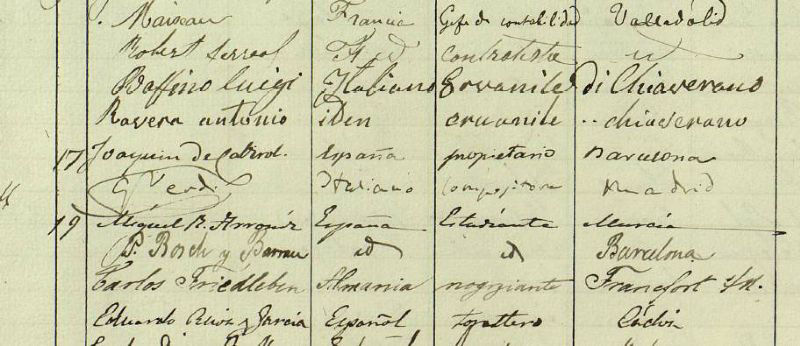 . Maiseau Francia Gefe de contabilidad Valladolid
Robert id contratista id
Boffino Luigi Italiano Ervanile di Chiaverano
Ravera antonio iden eruanile " chiaverano
17 Joaquin de Cabirol. España propietario Barcelona
G Verdi Italiano compositore Madrid
19 Miguel R. Arronis España Estudiante Murcia
P. Bosch y Barrau id id Barcelona
Carlos Friedleben Almania negoziante Francfort s/M.
Eduardo y Garcia Español Cádiz